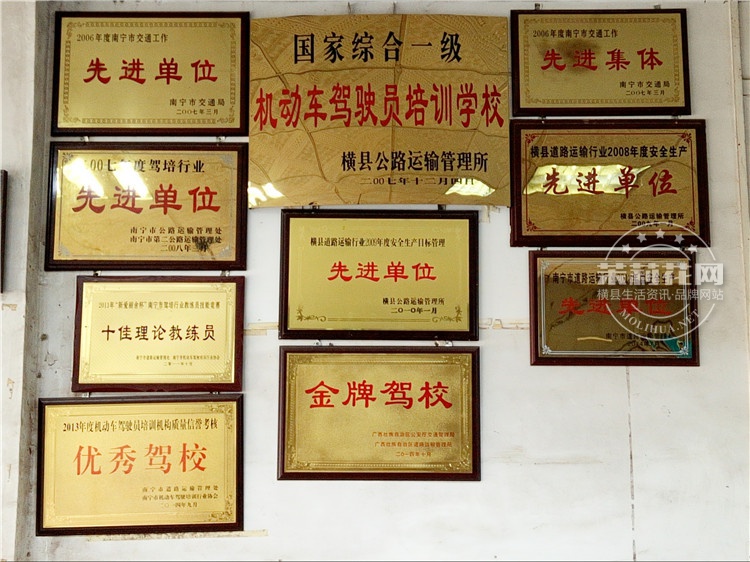 2006年度南宁市交通工作
先进单位
南宁市交通局
二00七年三月
国家综合一级
机动车驾驶员培训学校
横县公路运输管理所
二00七年十二月四日
2006年度南宁市交通工作
先进集体
南宁市交通局
二00七年三月
00七年度驾培行业
先进单位
南宁市公路运输管理处
南宁市第二公路运输管理处
二00八年三月
横县道路运输行业2008年度安全生产
先进单位
横县公路运输管理所
二00九年一月
横县道路运输行业2009年度安全生产目标管理
先进单位
横县公路运输管理所
二0一0年一月
南宁市道路运输
先进单位
茉莉花网
横县生活资讯·品牌网站
MOLIHUA.NET
十佳理论教练员
金牌驾校
二0一四年十月
2013年度机动车驾驶员培训机构质量信誉考核
优秀驾校
南宁市道路运输管理处
南宁市机动车驾驶培训行业协会
二0一四年九月